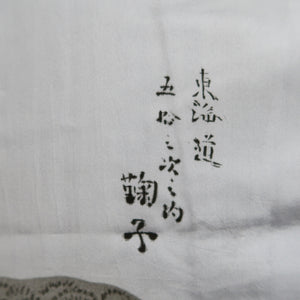 東海道
五拾三次之内
鞠子